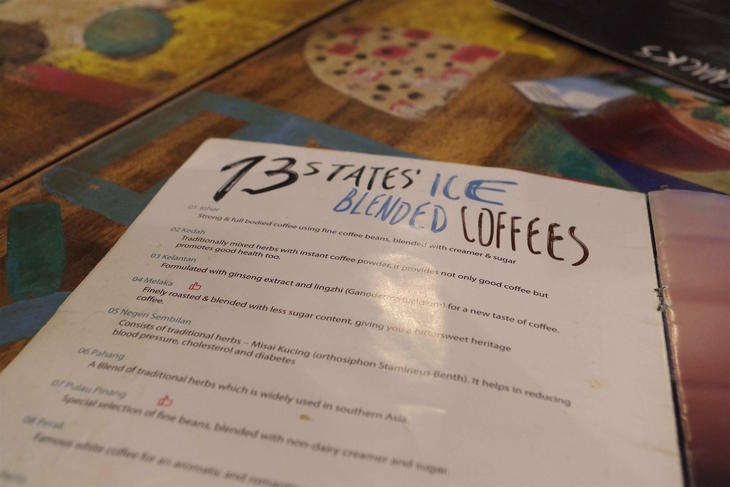 13 STATES' ICE
BLENDED COFFEES
01 Johor
Strong & full bodied coffee using fine coffee beans, blended with creamer & sugar
02 Kedah
Traditionally mixed herbs with instant coffee powder, it provides not only good coffee but
promotes good health too.
03 Kelantan
Formulated with ginseng extract and lingzhi (Ganoderma lucidum) for a new taste of coffee.
04 Melaka
Finely roasted & blended with less sugar content, giving you a bittersweet heritage
coffee.
05 Negeri Sembilan
Consists of traditional herbs – Misai Kucing (orthosiphon Stamineus Benth). It helps in reducing
blood pressure, cholesterol and diabetes
06 Pahang
A Blend of traditional herbs which is widely used in southern Asia.
07 Pulau Pinang
Special selection of fine beans, blended with non-dairy creamer and sugar.
08 Perak
Famous white coffee for an aromatic and romantic
Perlis
SNACKS